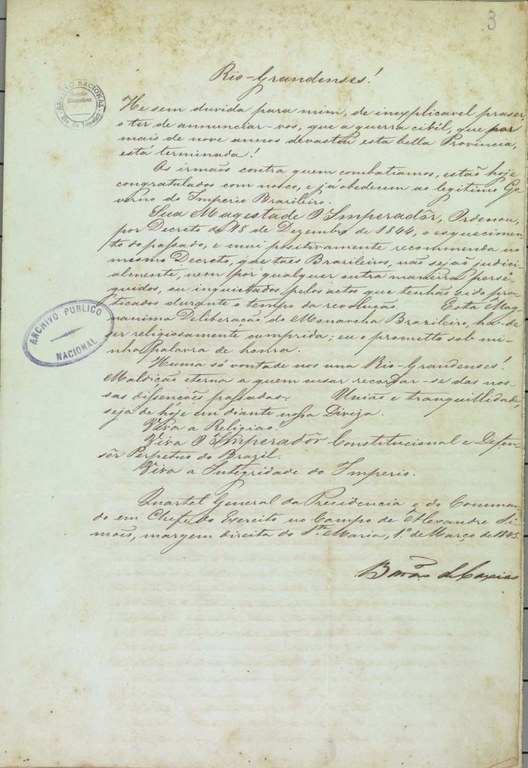 3
Rio-Grandenses!
He sem duvida para mim, de inexplicavel praser,
o ter de annunciar-vos, que a guerra cibil, que por
mais de nove annos devastou esta bella Provincia,
está terminada!
Os irmãos contra quem combatiamos, estaõ hoje
congratulados com nosco, e já obedecem ao legitimo Go
verno do Imperio Brazileiro.
Sua Magestade O Imperadôr, Ordenou,
por Decreto de 18 de Dezembro de 1844, o esquecimen
to do passado, e mui positivamente recommenda no
mesmo Decreto, que taes Brazileiros, naõ sejaõ judici
almente, nem por qualquer outra maneira perse
guidos, ou inquietados pelos actos que tenhaõ sido pra
ticados durante o tempo da revoluçaõ. Esta Mag
nanima Deliberaçaõ do Monarcha Brazileiro, ha de
ser religiosamente cumprida; eu o prometto sob mi
nha palavra de honra.
Huma só vontade nos una Rio-Grandenses.
Maldiçaõ eterna a quem ousar recordar-se das nos
sas dissençoẽs passadas. Uniaõ e tranquillidade,
seja de hoje em diante nossa Diviza.
Viva a Religiaõ.
Viva O Imperadôr Constitucional e Defen
sôr Perpetuo do Brazil.
Viva a Integridade do Imperio.
Quartel General da Presidencia e do Comman
do em Chefe do Exercito no Campo de Alexandre Si
mões, margem direita de S.ta Maria, 1º de Março de 1845.
Barão de Caxias
ARCHIVO PUBLICO
NACIONAL
ARCHIVO NACIONAL